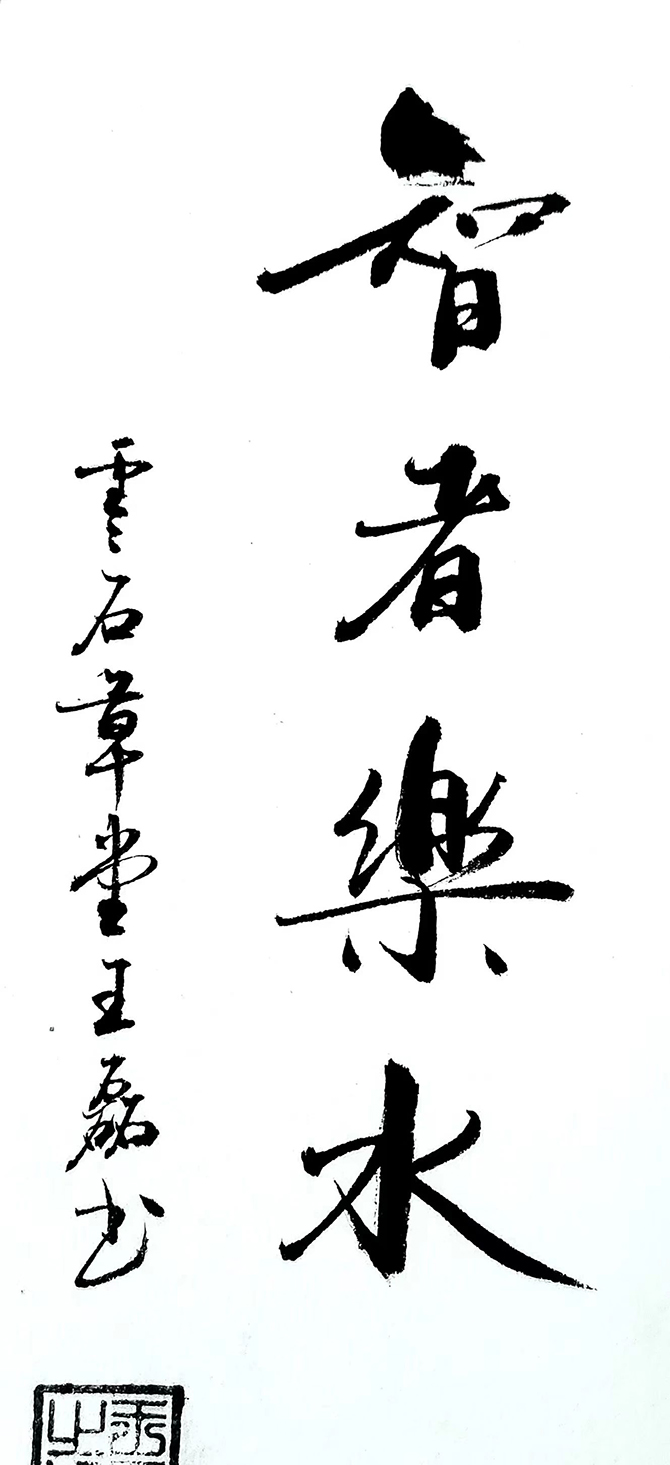 智者樂水
雲石草堂王磊书